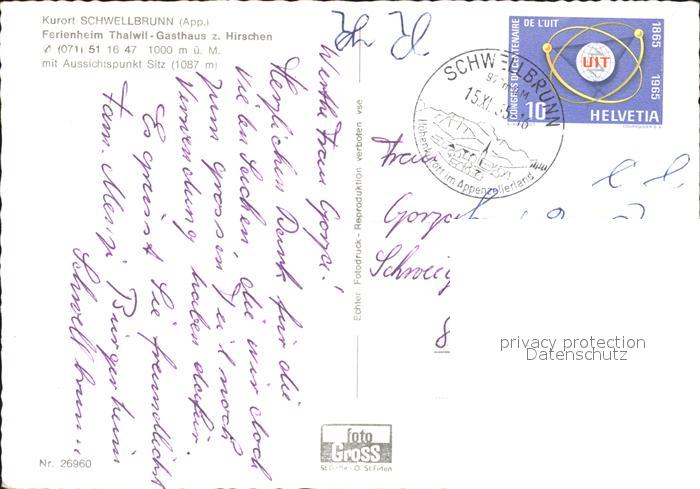 Kurort SCHWELLBRUNN (App.)
Ferienheim Thalwil - Gasthaus z. Hirschen
✆ (071) 51 16 47 1000 m ü. M.
mit Aussichtspunkt Sitz (1087 m)
Werthe Frau Gorza!
Herzlichen Dank für die
vielen Sachen die wir doch
zum grossen Teil noch
Verwendung haben dafür.
Es grüsst Sie freundlichst
Fam. Bürgerheim
Schwellbrunn
Echter Fotodruck - Reproduktion verboten vse
SCHWELLBRUNN
15.XI.
Höhenkurort im Appenzellerland
CONGRÈS DU CENTENAIRE
DE L'UIT
1865
1965
UIT
10
HELVETIA
COURVOISIER S.A.
Frau
8
privacy protection
Datenschutz
foto
GROSS
St. Gallen
Nr. 26960